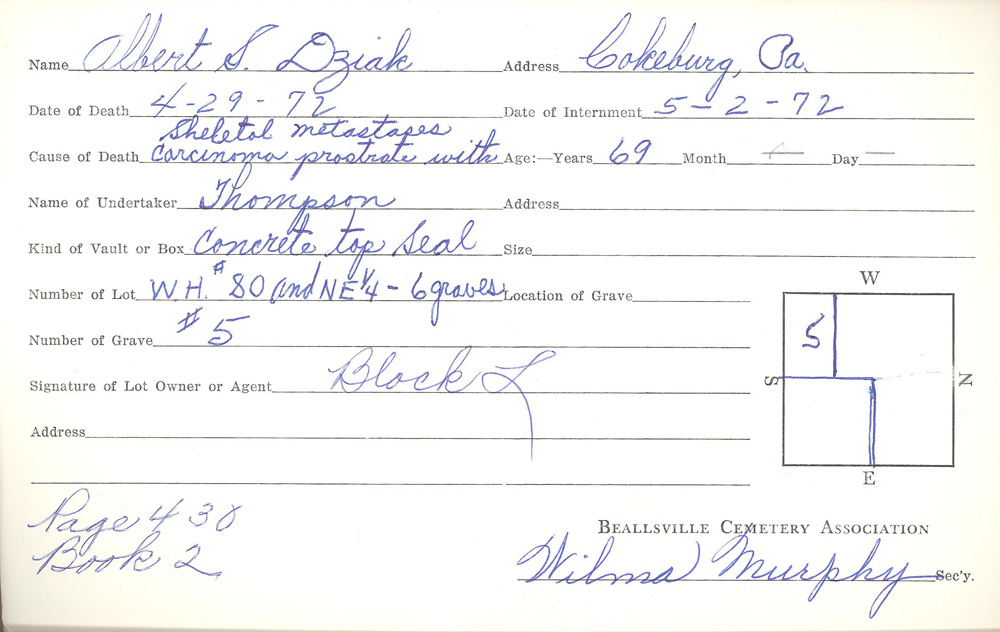 Name Albert S. Dziak Address Cokeburg, Pa.
Date of Death 4-29-72 Date of Internment 5-2-72
Skeletal metastases
Cause of Death Carcinoma prostrate with Age:—Years 69 Month — Day —
Name of Undertaker Thompson Address
Kind of Vault or Box Concrete top Seal Size
Number of Lot W.H. #80 and NE 1/4 - 6 graves Location of Grave
Number of Grave #5
Signature of Lot Owner or Agent Block L
Address
W
5
S
N
E
Page 430
Book 2
Beallsville Cemetery Association
Wilma Murphy Sec'y.